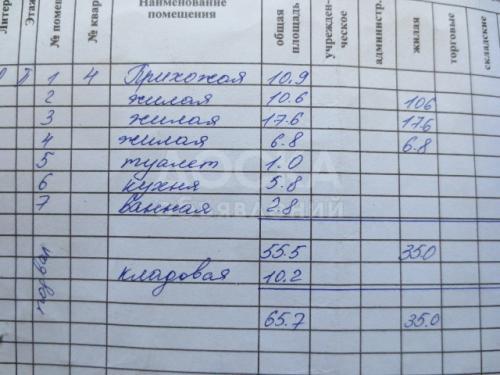 Литер Этаж № помещ № квар Наименование помещения общая площадь учрежден- ческое администр. жилая торговые складские
1 4 Прихожая 10.9
2 жилая 10.6 10.6
3 жилая 17.6 17.6
4 жилая 6.8 6.8
5 туалет 1.0
6 кухня 5.8
7 ванная 2.8
55.5 35.0
подвал кладовая 10.2
65.7 35.0
ДОСКА ОБЪЯВЛЕНИЙ